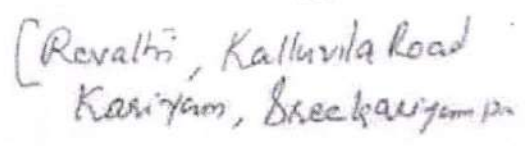 [Revathi, Kalluvila Road
Kariyam, Sreekariyam po